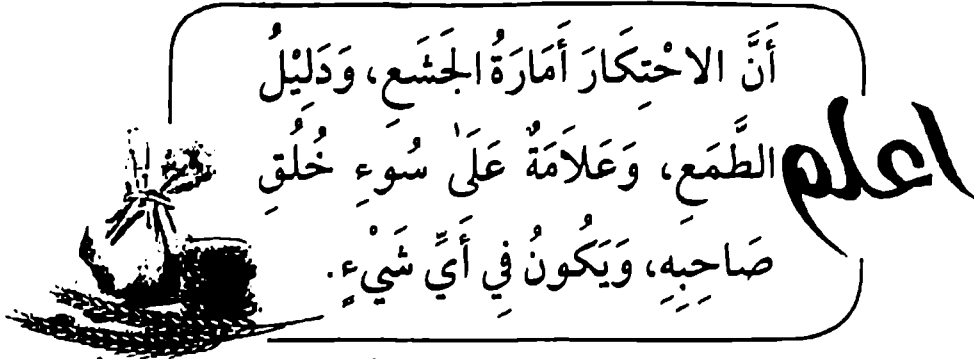 اعلم
أَنَّ الاحْتِكَارَ أَمَارَةُ الجَشَعِ، وَدَلِيْلُ
الطَّمَعِ، وَعَلاَمَةٌ عَلَىٰ سُوءِ خُلُقِ
صَاحِبِهِ، وَيَكُونُ فِي أَيِّ شَيْءٍ.